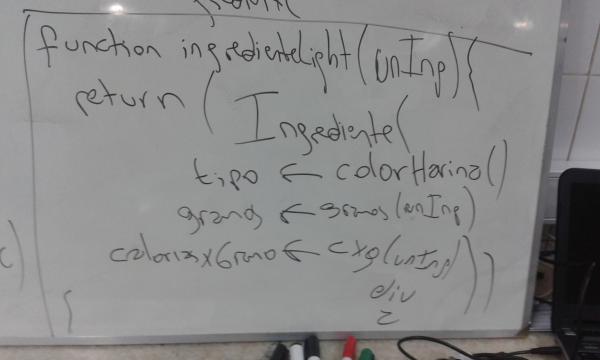 function ingredienteLight(unIng){
return (Ingrediente(
tipo ← colorHarina()
gramos ← gramos(unIng)
caloriasxGramo ← cxg(unIng)))
div
2
}
c)